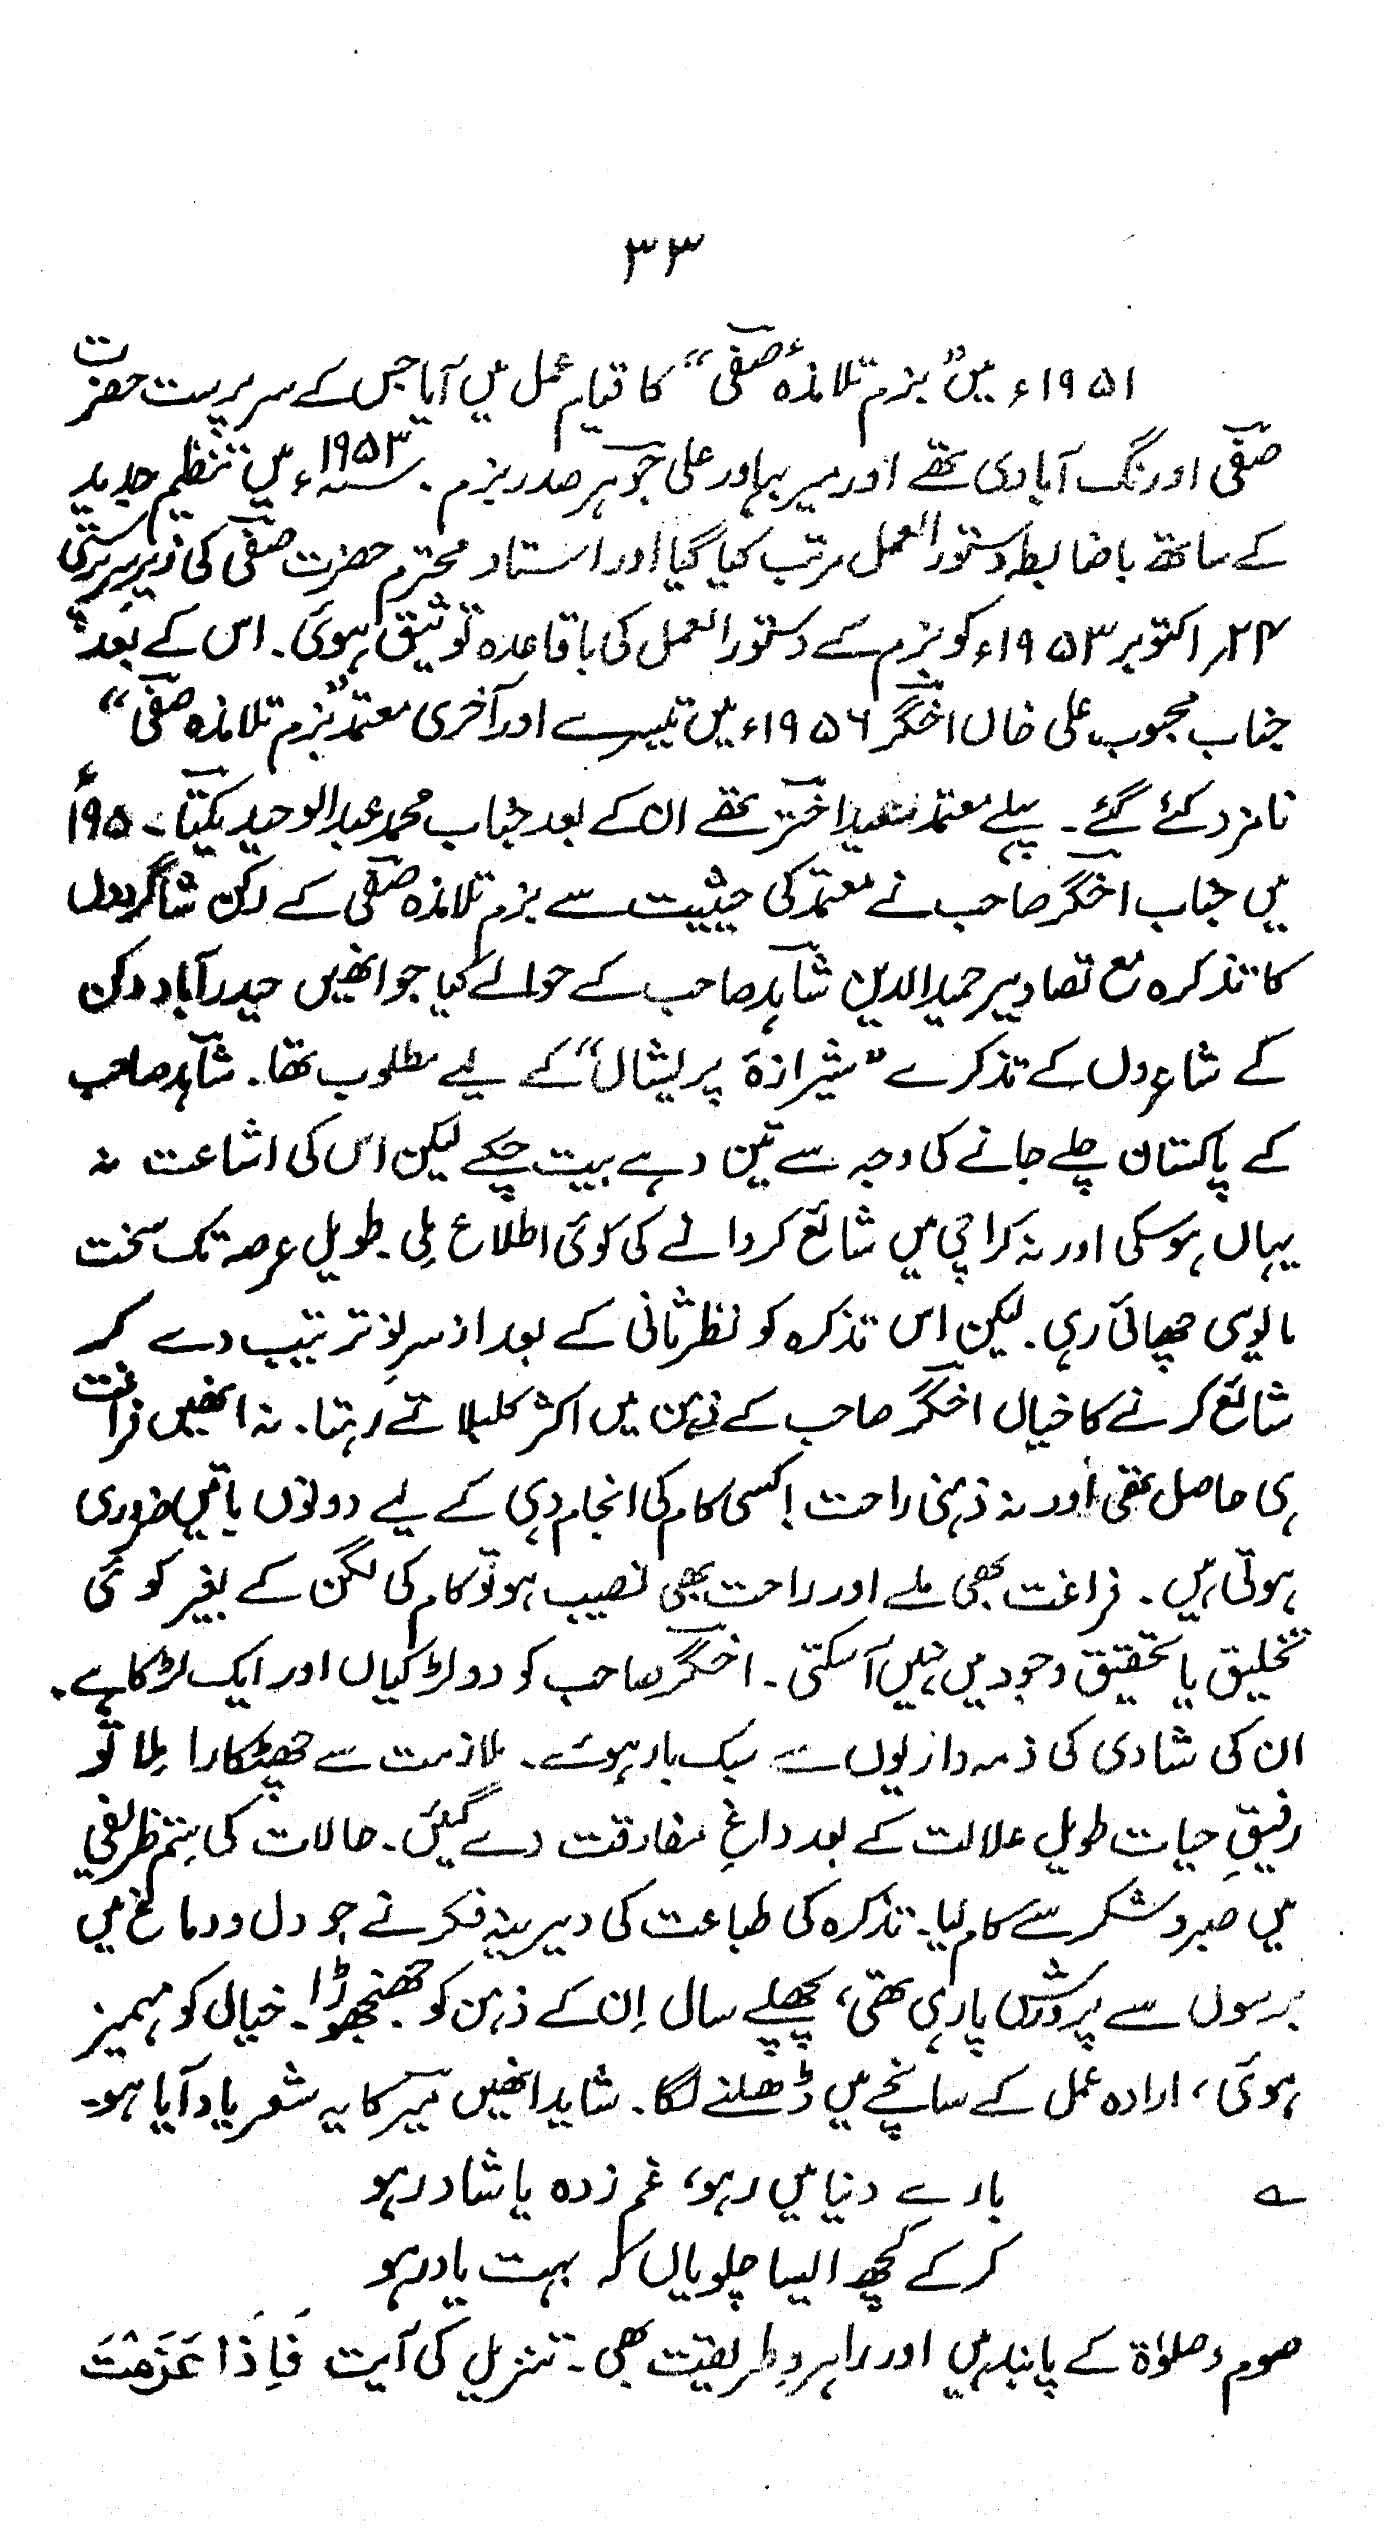 ۳۳
۱۹۵۱ء میں ”بزم تلامذہءصفیؔ“ کا قیام عمل میں آیا جس کے سرپرست حضرت
صفیؔ اورنگ آبادی تھے اور میر بہادر علی جوہرؔ صدر بزم۔ سنہ ۱۹۵۳ء میں تنظیم جدید
کے ساتھ باضابطہ دستور العمل مرتب کیا گیا اور استاد محترم حضرت صفیؔ کی زیرِ سرپرستی
۲۴؍ اکتوبر ۱۹۵۳ء کو بزم کے دستور العمل کی باقاعدہ توثیق ہوئی۔ اس کے بعد
جناب محبوب علی خاں اخگرؔ ۱۹۵۶ء میں تیسرے اور آخری معتمد ”بزم تلامذہ صفیؔ“
نامزد کئے گئے۔ پہلے معتمد سعید اخترؔ تھے ان کے بعد جناب محمد عبدالوحید یکتاؔ۔ ۱۹۵۰ء
میں جناب اخگرؔ صاحب نے معتمد کی حیثیت سے بزم تلامذہ صفیؔ کے رکن شاگردوں
کا تذکرہ مع تصاویر حمیدالدین شاہدؔ صاحب کے حوالے کیا جو انھیں حیدرآباد دکن
کے شاعروں کے تذکرے ”شیرازۂ پریشاں“ کے لیے مطلوب تھا۔ شاہدؔ صاحب
کے پاکستان چلے جانے کی وجہ سے تین دہے بیت چکے لیکن اس کی اشاعت نہ
یہاں ہوسکی اور نہ کراچی میں شائع کروانے کی کوئی اطلاع ملی۔ طویل عرصہ تک سخت
مایوسی چھائی رہی۔ لیکن اس تذکرہ کو نظرثانی کے بعد از سرِ نو ترتیب دے کر
شائع کرنے کا خیال اخگرؔ صاحب کے ذہن میں اکثر کلبلاتے رہتا۔ نہ انھیں فراغت
ہی حاصل تھی اور نہ ذہنی راحت! کسی کام کی انجام دہی کے لیے دونوں باتیں ضروری
ہوتی ہیں۔ فراغت بھی ملے اور راحت بھی نصیب ہو تو کام کی لگن کے بغیر کوئی
تخلیق یا تحقیق وجود میں نہیں آسکتی۔ اخگرؔ صاحب کو دو لڑکیاں اور ایک لڑکا ہے۔
ان کی شادی کی ذمہ داریوں سے سبک بار ہوئے۔ ملازمت سے چھٹکارا ملا تو
رفیقِ حیات طویل علالت کے بعد داغِ مفارقت دے گئیں۔ حالات کی ستم ظریفی
میں صبر و شکر سے کام لیا۔ تذکرہ کی طباعت کی دیرینہ فکر نے جو دل و دماغ میں
برسوں سے پرورش پارہی تھی، پچھلے سال اِن کے ذہن کو جھنجھوڑا۔ خیال کو مہمیز
ہوئی، ارادہ عمل کے سانچے میں ڈھلنے لگا۔ شاید انھیں میرؔ کا یہ شعر یاد آیا ہو۔
؎ بارے دنیا میں رہو، غم زدہ یا شاد رہو
کرکے کچھ ایسا چلو یاں کہ بہت یاد رہو
صوم و صلوٰۃ کے پابند ہیں اور راہروِ طریقت بھی۔ تنزیل کی آیت فَاِذَا عَزَمْتَ